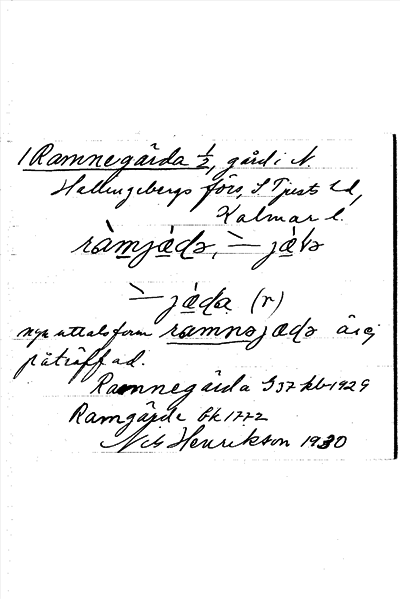 1 Ramnegärda 1/2, gård i N.
Hallingebergs förs, S Tjust hd,
Kalmar l.
ràmjǽdə, – jǽ
– jǽda (r)
nya uttalsform ramnəjædə är ej
påträffad.
Ramnegärda G37 kb 1929
Ramgärde 1772
Nils Henrikson 1930